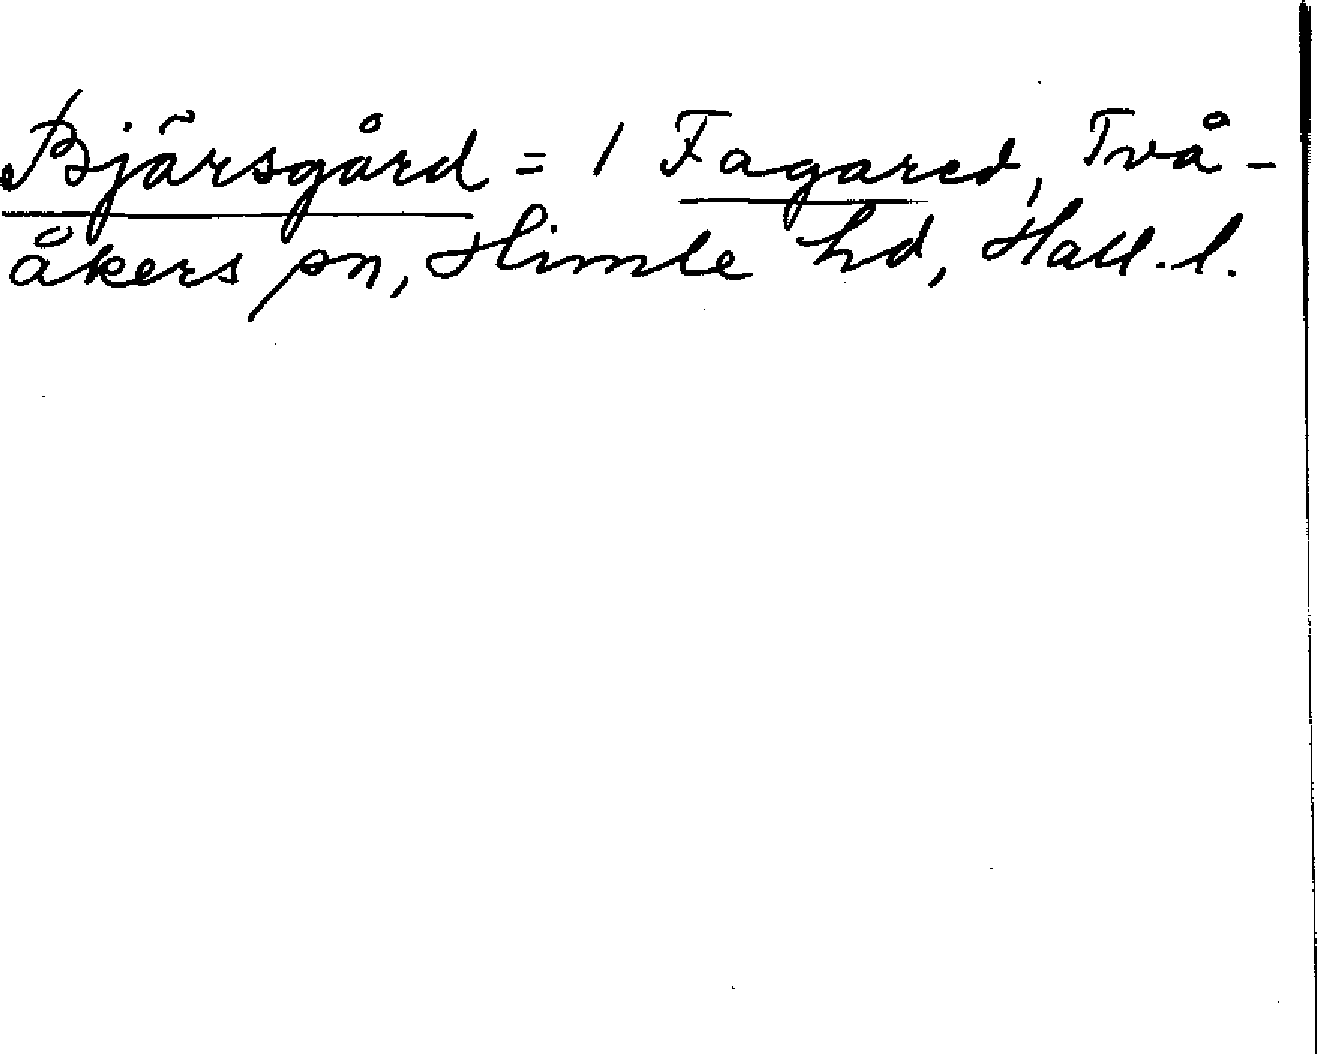 Bjärsgård = 1 Fagared, Två-
åkers sn, Himle hd, Hall. l.